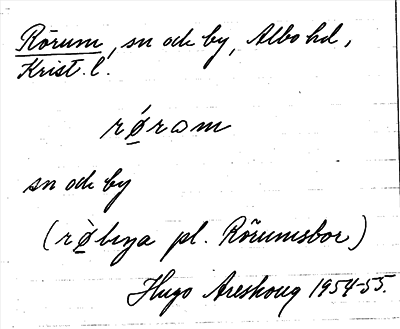 Rörum, sn och by, Albo hd,
Krist. l.
rǿram
sn och by
(rø̀bᴉŋa pl. Rörumsbor)
Hugo Areskoug 1954-55.